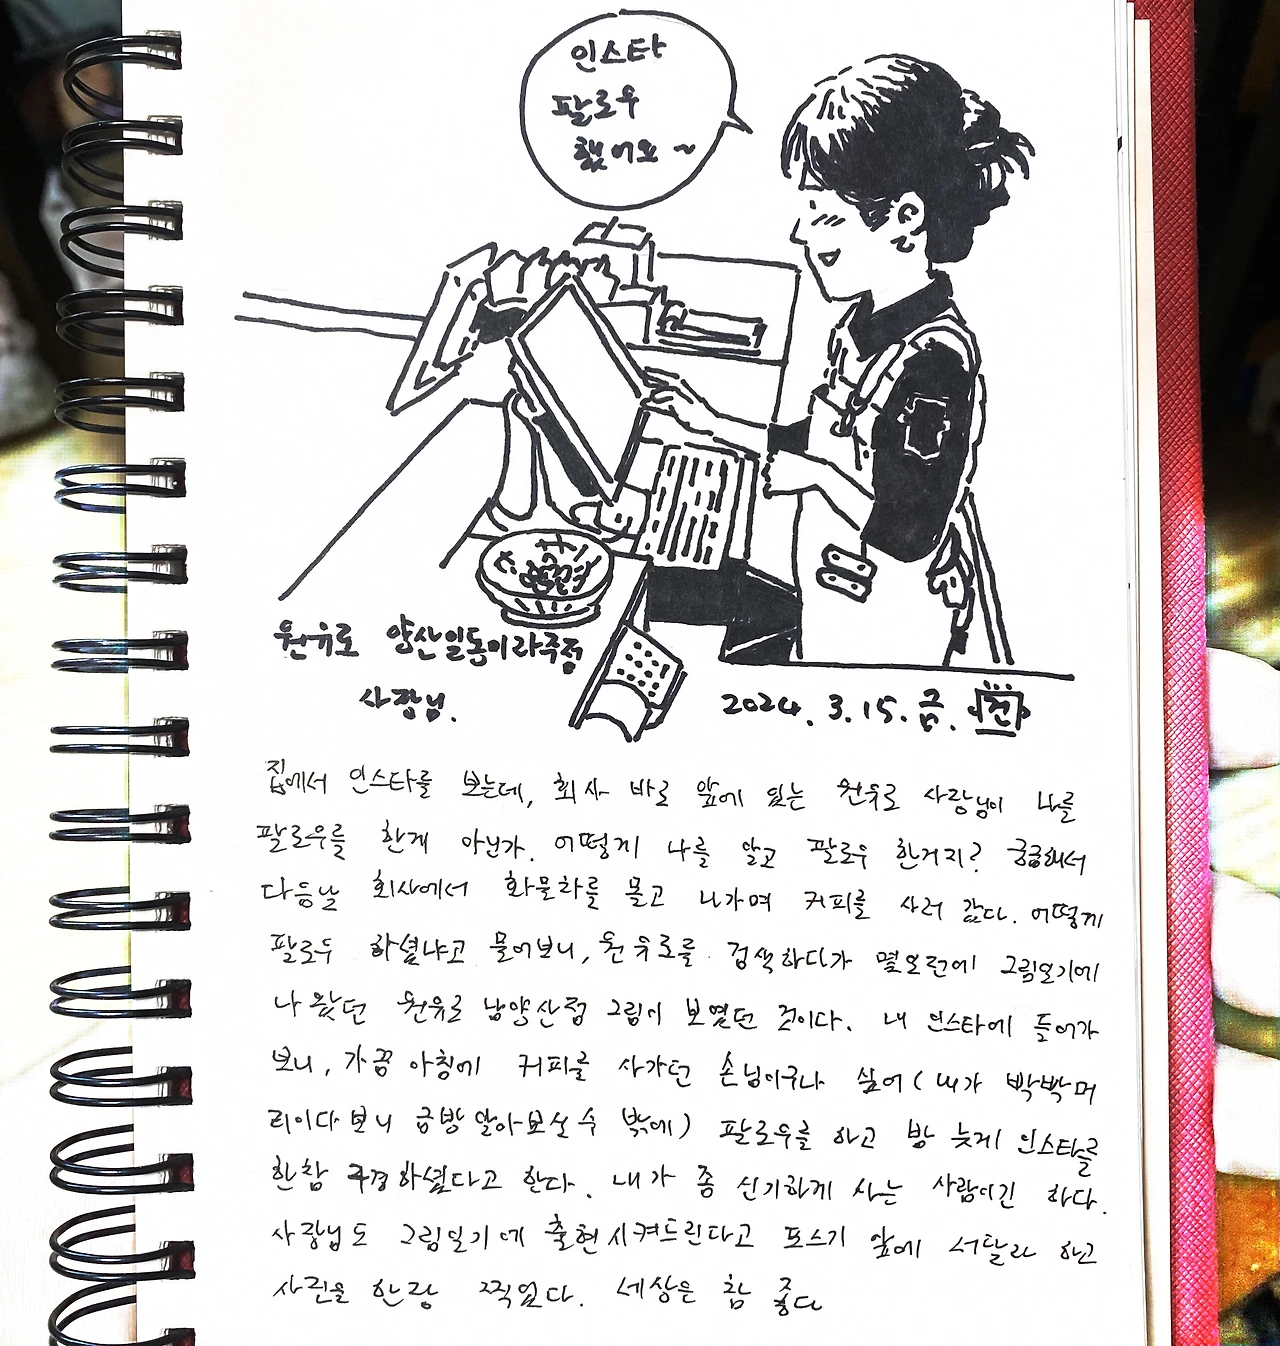 인스타
팔로우
했어요~
원유로 양산일동이라주점
사장님.
2024. 3. 15. 금. 전
집에서 인스타를 보는데, 회사 바로 앞에 있는 원유로 사장님이 나를
팔로우를 한게 아닌가. 어떻게 나를 알고 팔로우 한거지? 궁금해서
다음날 회사에서 화물차를 몰고 나가며 커피를 사러 갔다. 어떻게
팔로우 하셨냐고 물어보니, 원유로를 검색하다가 몇오런에 그림일기에
나왔던 원유로 남양산점 그림이 보였던 것이다. 내 인스타에 들어가
보니, 가끔 아침에 커피를 사가던 손님이구나 싶어 (내가 박박머
리이다 보니 금방 알아보실 수 밖에) 팔로우를 하고 밤 늦게 인스타를
한참 구경하셨다고 한다. 내가 좀 신기하게 사는 사람이긴 하다.
사장님도 그림일기에 출현시켜드린다고 포스기 앞에 서달라 하고
사진을 한장 찍었다. 세상은 참 좋다